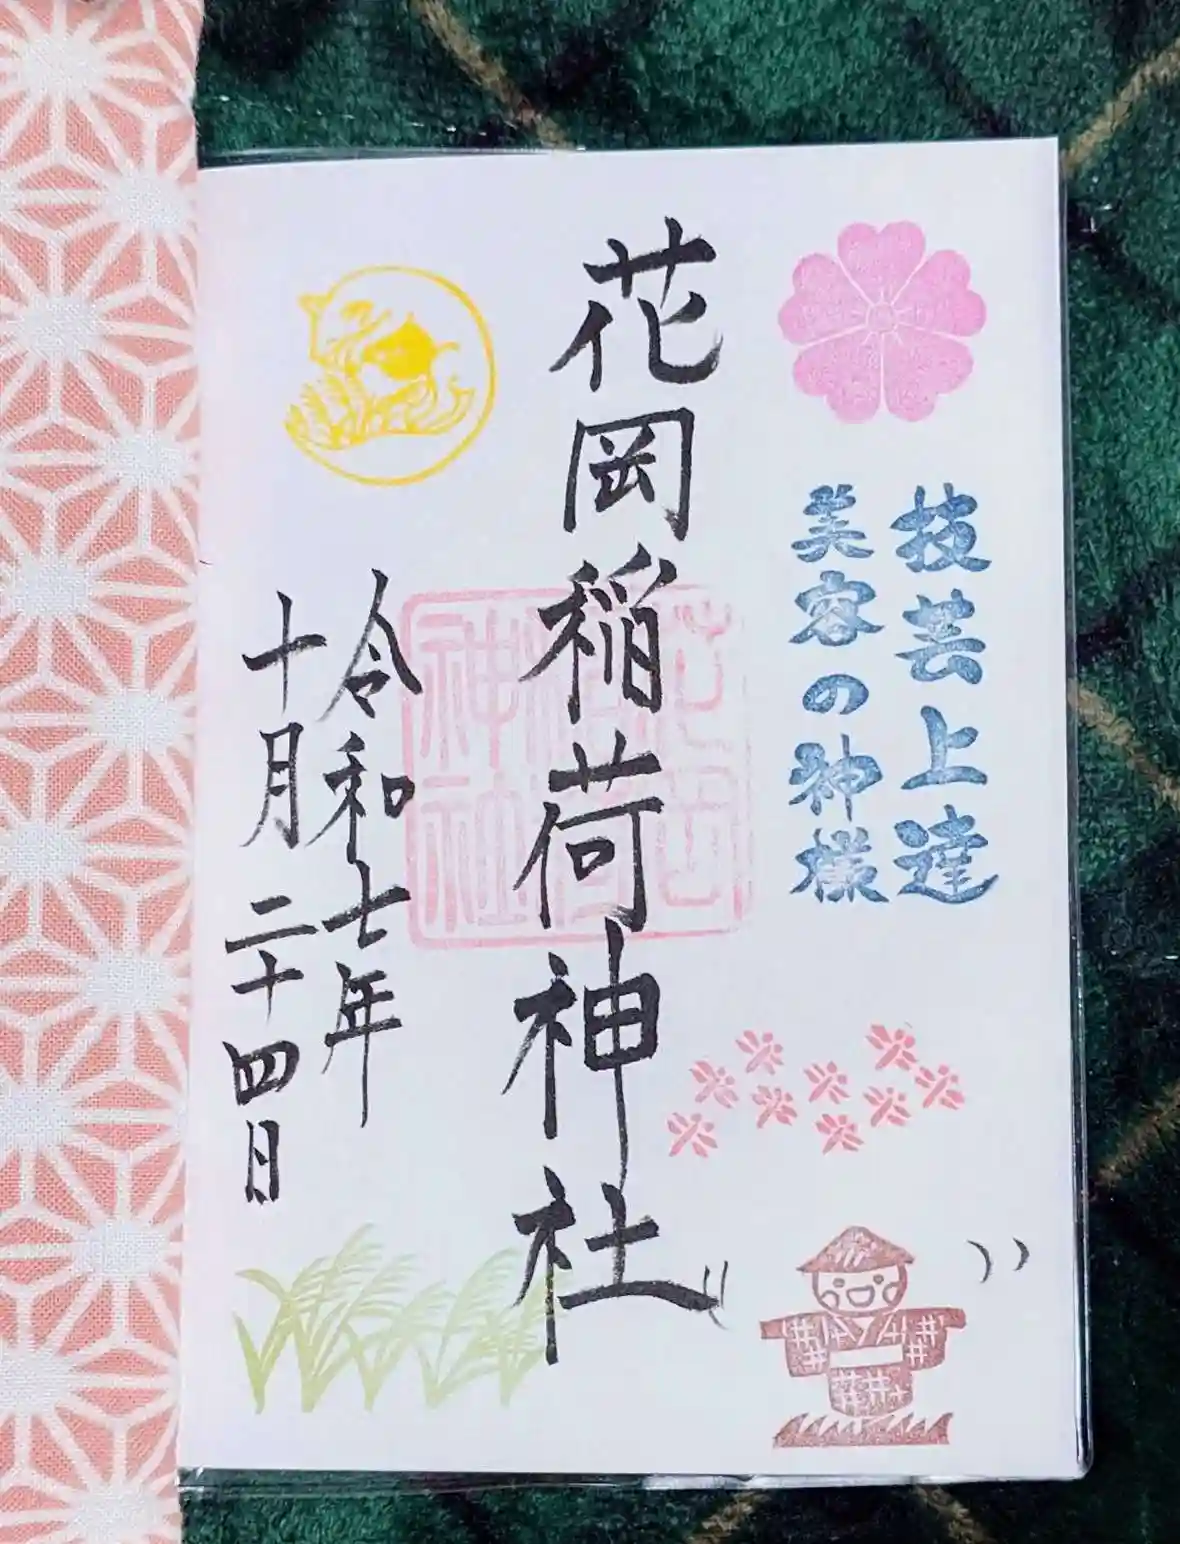 技芸上達
美容の神様
花岡稲荷神社
花岡
神社
令和七年
十月二十四日